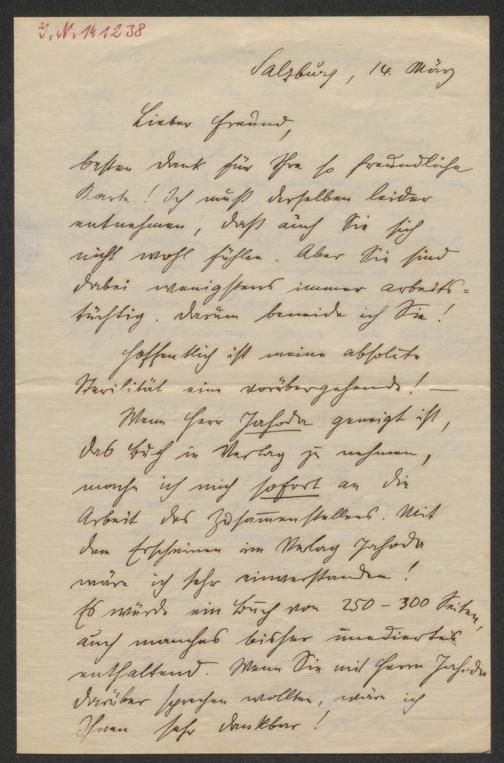 J. N. 141238
Salzburg, 14. März
Lieber Freund,
besten Dank für Ihre so freundliche
Karte! Ich muß derselben leider
entnehmen, daß auch Sie sich
nicht wohl fühlen. Aber Sie sind
dabei wenigstens immer arbeits-
tüchtig. Darum beneide ich Sie!
Hoffentlich ist meine absolute
Sterilität eine vorübergehende! —
Wenn Herr Jahoda geneigt ist,
das Buch in Verlag zu nehmen,
mache ich mich sofort an die
Arbeit des Zusammenstellens. Mit
dem Erscheinen im Verlag Jahoda
wäre ich sehr einverstanden!
Es würde ein Buch von 250 – 300 Seiten,
auch manches bisher unediertes
enthaltend. Wenn Sie mit Herrn Jahoda
darüber sprechen wollten, wäre ich
Ihnen sehr dankbar!